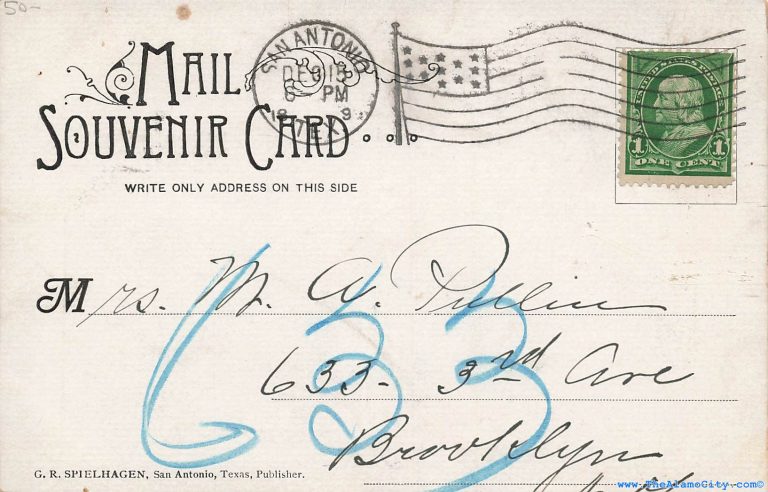 50-
MAIL
SOUVENIR CARD...
WRITE ONLY ADDRESS ON THIS SIDE
SAN ANTONIO
DEC 18
6 PM
TEX
UNITED STATES POSTAGE
1 1
ONE CENT
Mrs. M. A. Pullin
633- 3rd Ave
Brooklyn
633
G. R. SPIELHAGEN, San Antonio, Texas, Publisher.
www.TheAlamoCity.com©